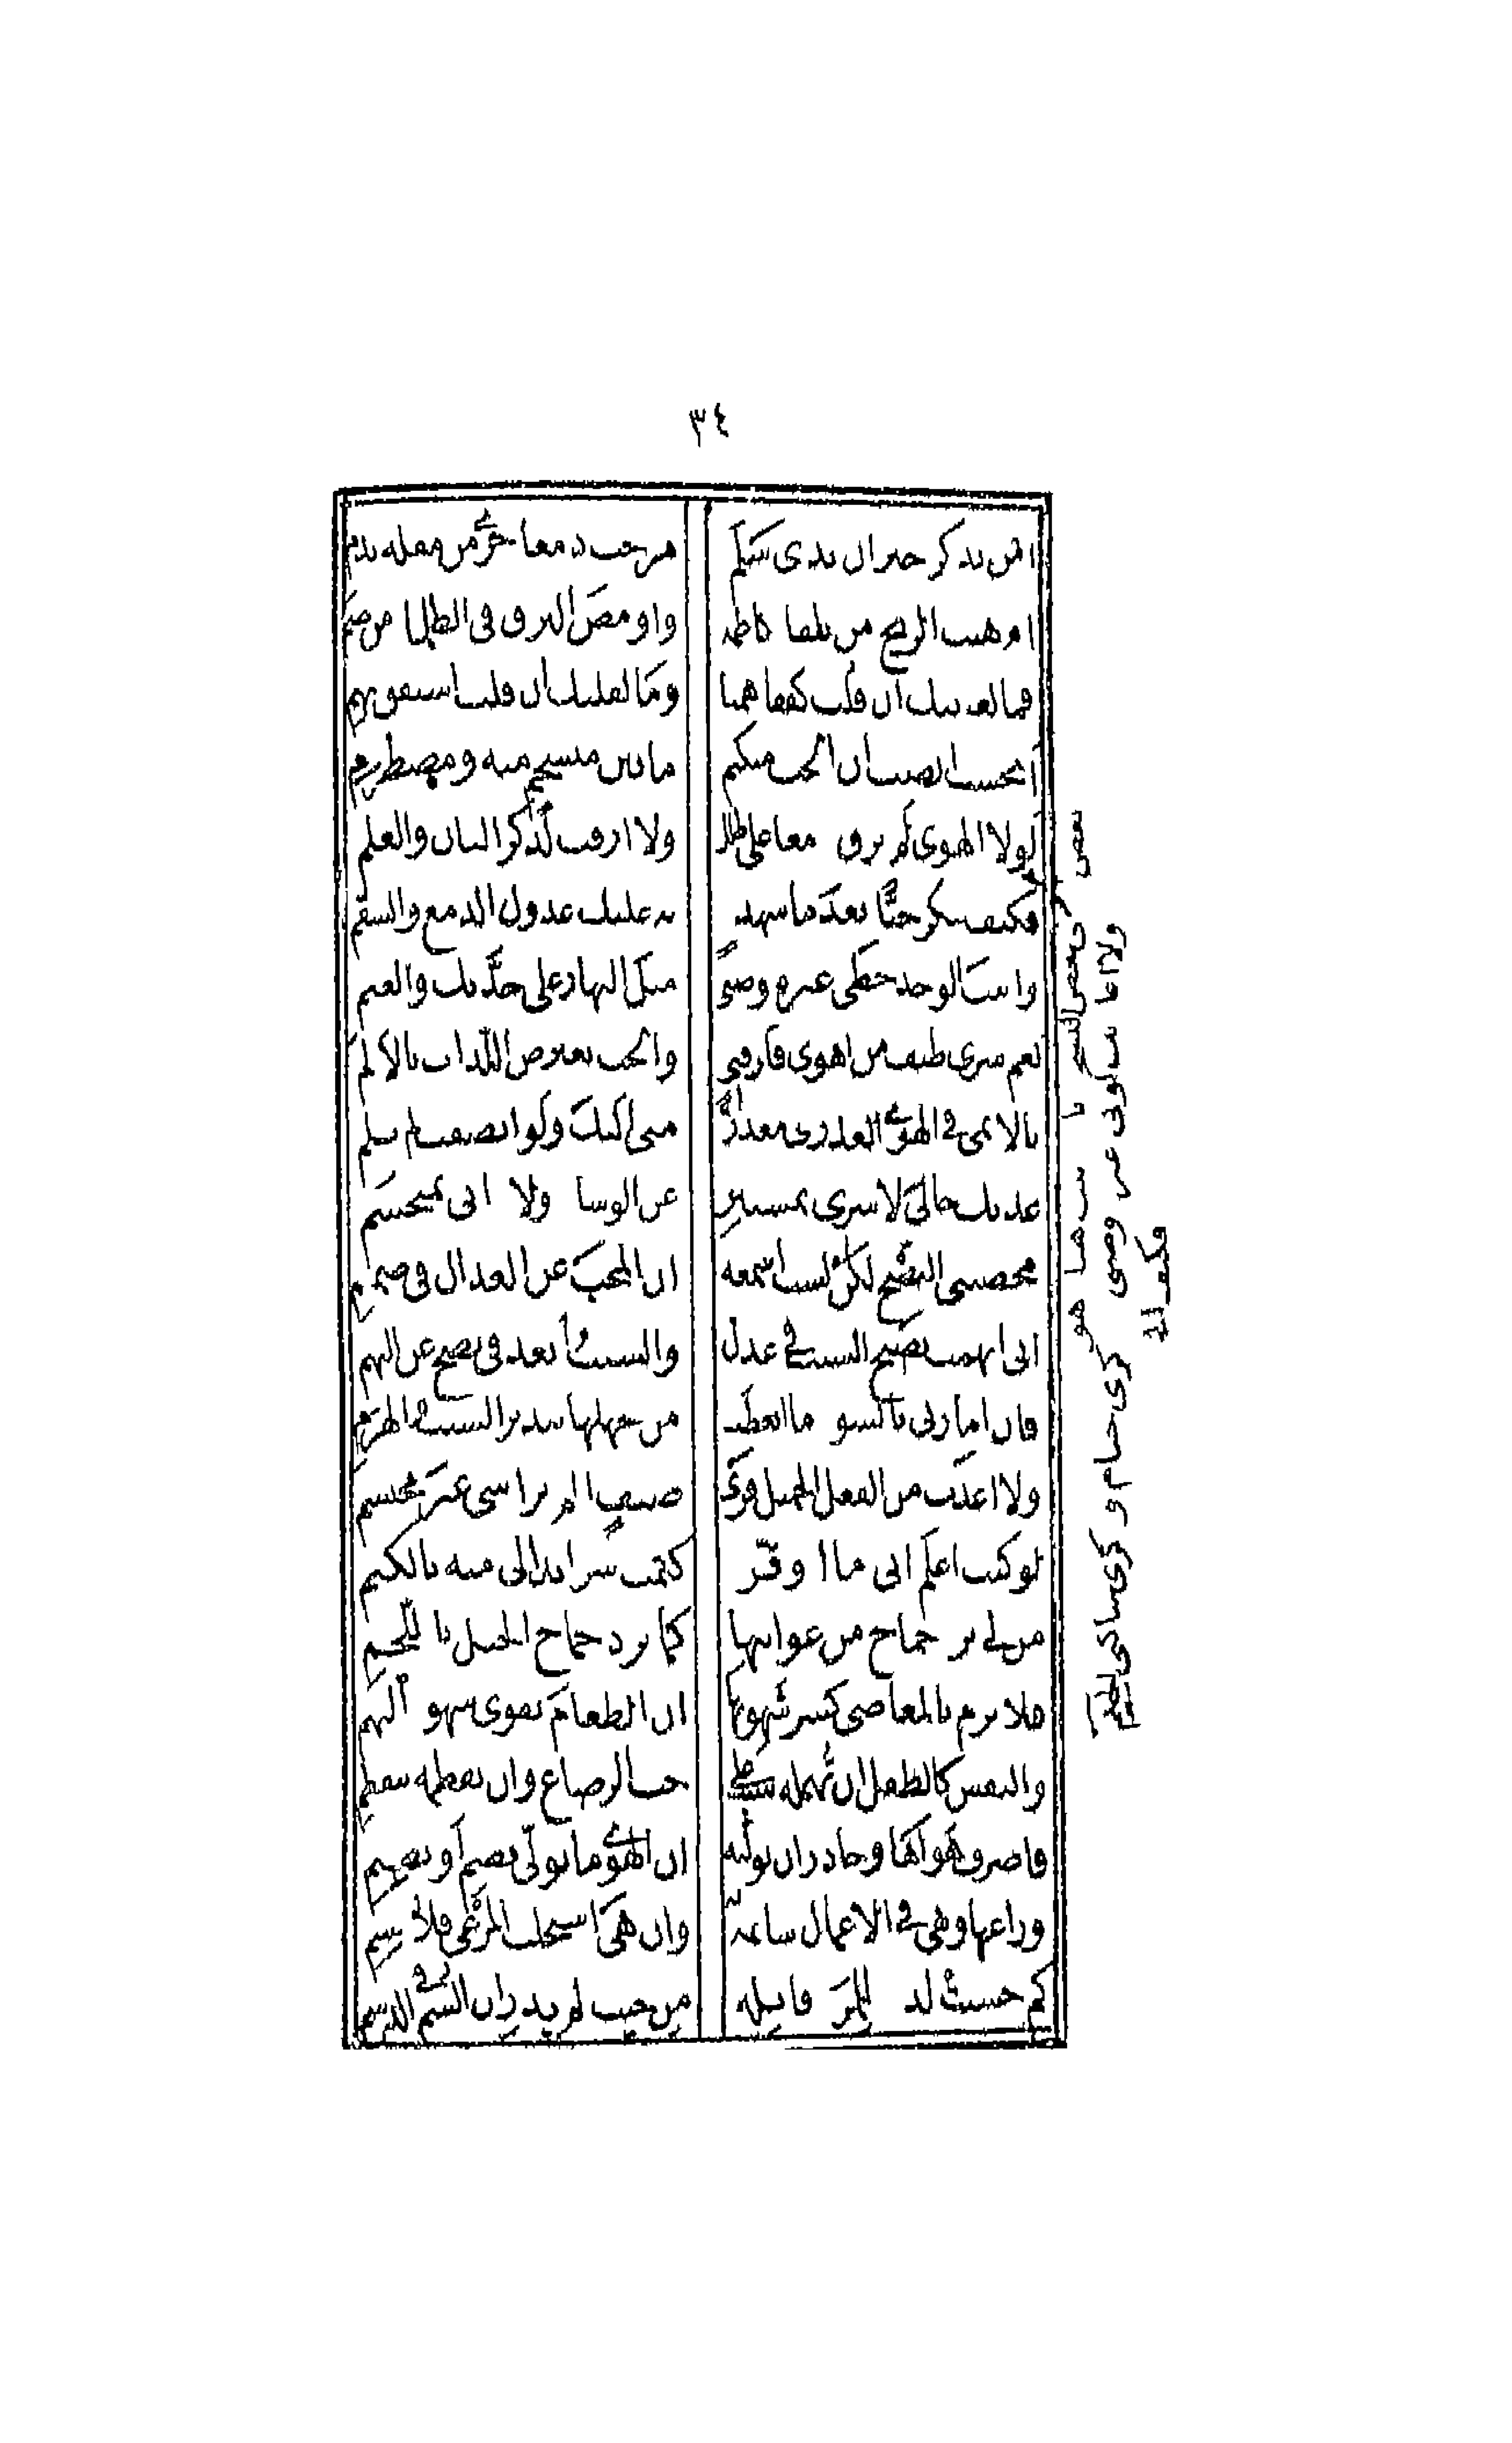 ٣٤
امن تذكر جيران بذى سلم مزجت دمعا جرى من مقلة بدم
ام هبت الريح من تلقا كاظمة واومض البرق فى الظلما من اضم
فما لعينيك ان قلت اكففا همتا وما لقلبك ان قلت استفق يهم
ايحسب الصب ان الحب منكتم ما بين منسجم منه ومضطرم
لولا الهوى لم ترق دمعا على طلل ولا ارقت لذكر البان والعلم
فكيف تنكر حبًّا بعد ما شهدت به عليك عدول الدمع والسقم
واثبت الوجد خطى عبرة وضنى مثل البهار على خدّيك والعنم
نعم سرى طيف من اهوى فارقنى والحب يعترض اللّذات بالالم
يا لائمى فى الهوى العذرى معذرة منى اليك ولو انصفت لم تلم
عدتك حالى لا سرى بمستتر عن الوشاة ولا دائى بمنحسم
محضتنى النصح لكن لست اسمعه ان المحب عن العذال فى صمم
انى اتهمت نصيح الشيب فى عذل والشيب ابعد فى نصح عن التهم
فان امارتى بالسوء ما اتعظت من جهلها بنذير الشيب والهرم
ولا اعدت من الفعل الجميل قرى ضيف الم براسى غير محتشم
لو كنت اعلم انى ما اوقّره كتمت سرا بدا لى منه بالكتم
من لى برد جماح من غوايتها كما يرد جماح الخيل باللّجم
فلا ترم بالمعاصى كسر شهوتها ان الطعام يقوى شهوة النهم
والنفس كالطفل ان تهمله شب على حب الرضاع وان تفطمه ينفطم
فاصرف هواها وحاذر ان توليه ان الهوى ما تولّى يصم او يصم
وراعها وهى فى الاعمال سائمة وان هى استحلت المرعى فلا تسم
كم حسنت لذة للمرء قاتلة من حيث لم يدر ان السم فى الدسم
ولا اعارتك لونى عبرة وضنى ذكرى خيام وذكرى ساكنى الخيم